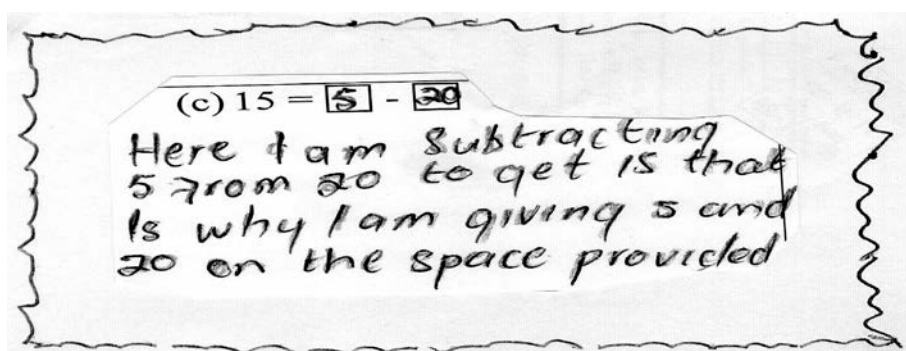 (c) 15 = 5 - 20
Here I am Subtracting
5 from 20 to get 15 that
Is why I am giving 5 and
20 on the space provided